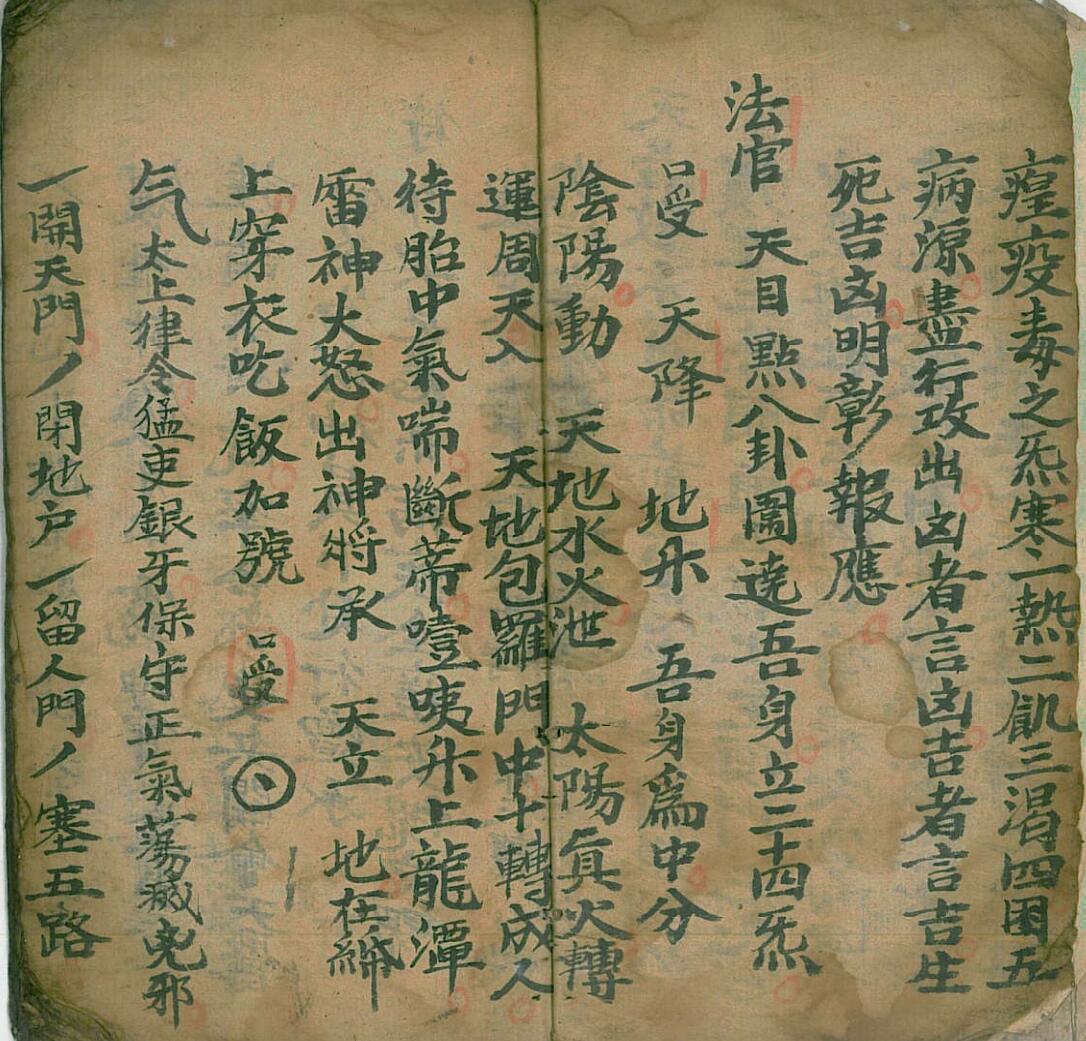 瘟疫毒之炁寒一熱二飢三渴四困五
病源盡行攻出凶者言凶吉者言吉生
死吉凶明彰報應
法官 天目點八卦圖遶吾身立二十四炁
口受 天降 地升 吾身為中分
陰陽動 天地水火泄 太陽真火轉
運周天入 天地包羅門中十轉成人
待胎中氣喘斷蒂噎咦升上龍潭
雷神大怒出神將承 天立 地在
上穿衣吃飯加號 口受
气 太上律令猛吏銀牙保守正氣蕩滅鬼邪
一開天門丿閉地户一留人門丿塞五路